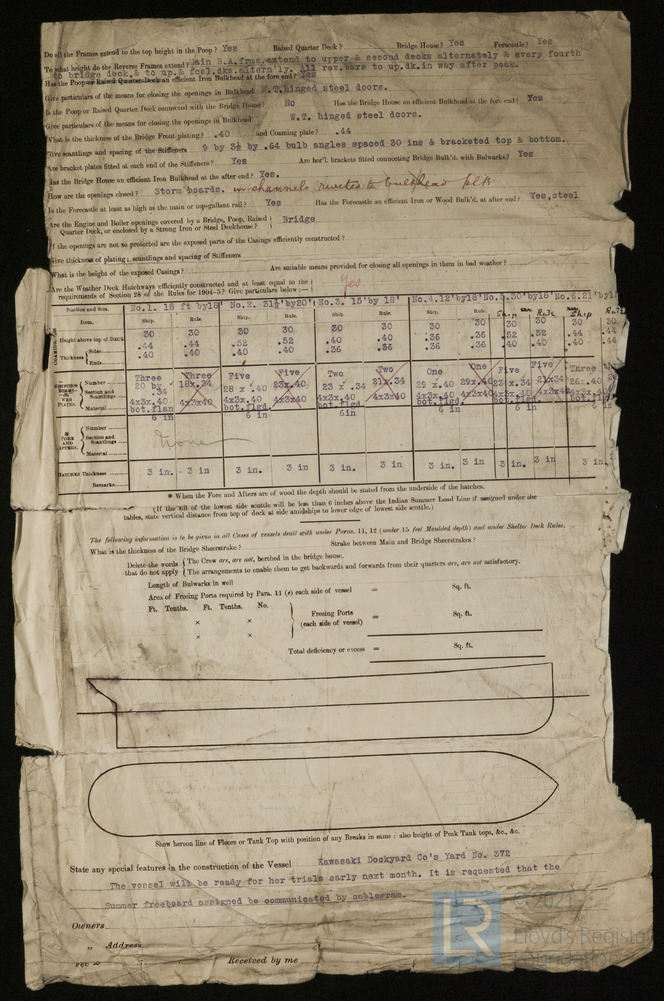 Do all the Frames extend to the top height in the Poop? Yes Raised Quarter Deck? Bridge House? Yes Forecastle? Yes
To what height do the Reverse Frames extend? Main B.A.frms.extend to upper & second decks alternately & every fourth
to bridge deck,& to up.& fcsl.dks.altern'ly. All rev.bars to up.dk.in way after peak.
Has the Poop or Raised Quarter Deck an efficient Iron Bulkhead at the fore end? Yes
Give particulars of the means for closing the openings in Bulkhead W.T.hinged steel doors.
Is the Poop or Raised Quarter Deck connected with the Bridge House? No Has the Bridge House an efficient Bulkhead at the fore end? Yes
Give particulars of the means for closing the openings in Bulkhead W.T. hinged steel doors.
What is the thickness of the Bridge Front plating? .40 and Coaming plate? .44
Give scantlings and spacing of the Stiffeners 9 by 3½ by .64 bulb angles spaced 30 ins & bracketed top & bottom.
Are bracket plates fitted at each end of the Stiffeners? Yes Are hor'l. brackets fitted connecting Bridge Bulk'd. with Bulwarks? Yes
Has the Bridge House an efficient Iron Bulkhead at the after end? Yes.
How are the openings closed? Storm boards. in channels riveted to bulkhead plR
Is the Forecastle at least as high as the main or top-gallant rail? Yes Has the Forecastle an efficient Iron or Wood Bulk'd. at after end? Yes,steel
Are the Engine and Boiler openings covered by a Bridge, Poop, Raised Bridge
Quarter Deck, or enclosed by a Strong Iron or Steel Deckhouse?
If the openings are not so protected are the exposed parts of the Casings efficiently constructed?
Give thickness of plating, scantlings and spacing of Stiffeners
What is the height of the exposed Casings? Are suitable means provided for closing all openings in them in bad weather?
Are the Weather Deck Hatchways efficiently constructed and at least equal to the Yes
requirements of Section 28 of the Rules for 1904-5? Give particulars below:—
Position and Size. No.1. 18 ft by18' No.2. 31½'by20' No.3. 15'by 18' No.4.12'by18' No.5.30'by18' No.6.21'by1
Item. Ship. Rule. Ship. Rule. Ship. Rule. Ship. Rule. Ship Rule Ship Rule
Height above top of DECK 30 30 30 30 30 30 30 30 30 30 30 30
Thickness Sides .44 .44 .52 .52 .40 .40 .36 .36 .52 .52 .44 .44
Ends .40 .40 .40 .40 .36 .36 .36 .36 .40 .40 .40
Number Three Three Five Five Two Two One One Five Five Three
Section and Scantlings 20 by .34 18x.34 28 x .40 23x.40 23 x .34 21x.34 29 x.40 29x.40 23 x.34 21x34 26x.40
4x3x.40 4x3x40 4x3x.40 4x3x40 4x3x.40 4x3x40 4x3x.40 4x3x40 4x3x.40 4x3x40 4x3x.40
Material bot.flan bot.flgd. bot.flgd. bot.flgd. bot.flgd. bot.flgd.
6 in 6 in 6in 6 in 6 in 6 in
FORE AND AFTERS.
Number
Section and Scantlings None
Material
HATCHES Thickness 3 in 3 in 3 in. 3 in 3 in 3 in 3 in. 3 in 3 in. 3 in 3 in.
Remarks
* When the Fore and Afters are of wood the depth should be stated from the underside of the hatches.
(If the sill of the lowest side scuttle will be less than 6 inches above the Indian Summer Load Line if assigned under the
tables, state vertical distance from top of deck at side amidships to lower edge of lowest side scuttle.)
The following information is to be given in all Cases of vessels dealt with under Paras. 11, 12 (under 15 feet Moulded depth) and under Shelter Deck Rules.
What is the thickness of the Bridge Sheerstrake? Strake between Main and Bridge Sheerstrakes?
Delete the words that do not apply
The Crew are, are not, berthed in the bridge house.
The arrangements to enable them to get backwards and forwards from their quarters are, are not satisfactory.
Length of Bulwarks in well
Area of Freeing Ports required by Para. 11 (e) each side of vessel = Sq. ft.
Ft. Tenths. Ft. Tenths. No.
×
× Freeing Ports (each side of vessel) = Sq. ft.
×
Total deficiency or excess = Sq. ft.
Show hereon line of Floors or Tank Top with position of any Breaks in same: also height of Peak Tank tops, &c., &c.
State any special features in the construction of the Vessel Kawasaki Dockyard Co's Yard No. 372
The vessel will be ready for her trials early next month. It is requested that the
Summer freeboard assigned be communicated by cablegram.
Owners
„ Address
Received by me
LR
© 2021
Lloyd's Register
Foundation